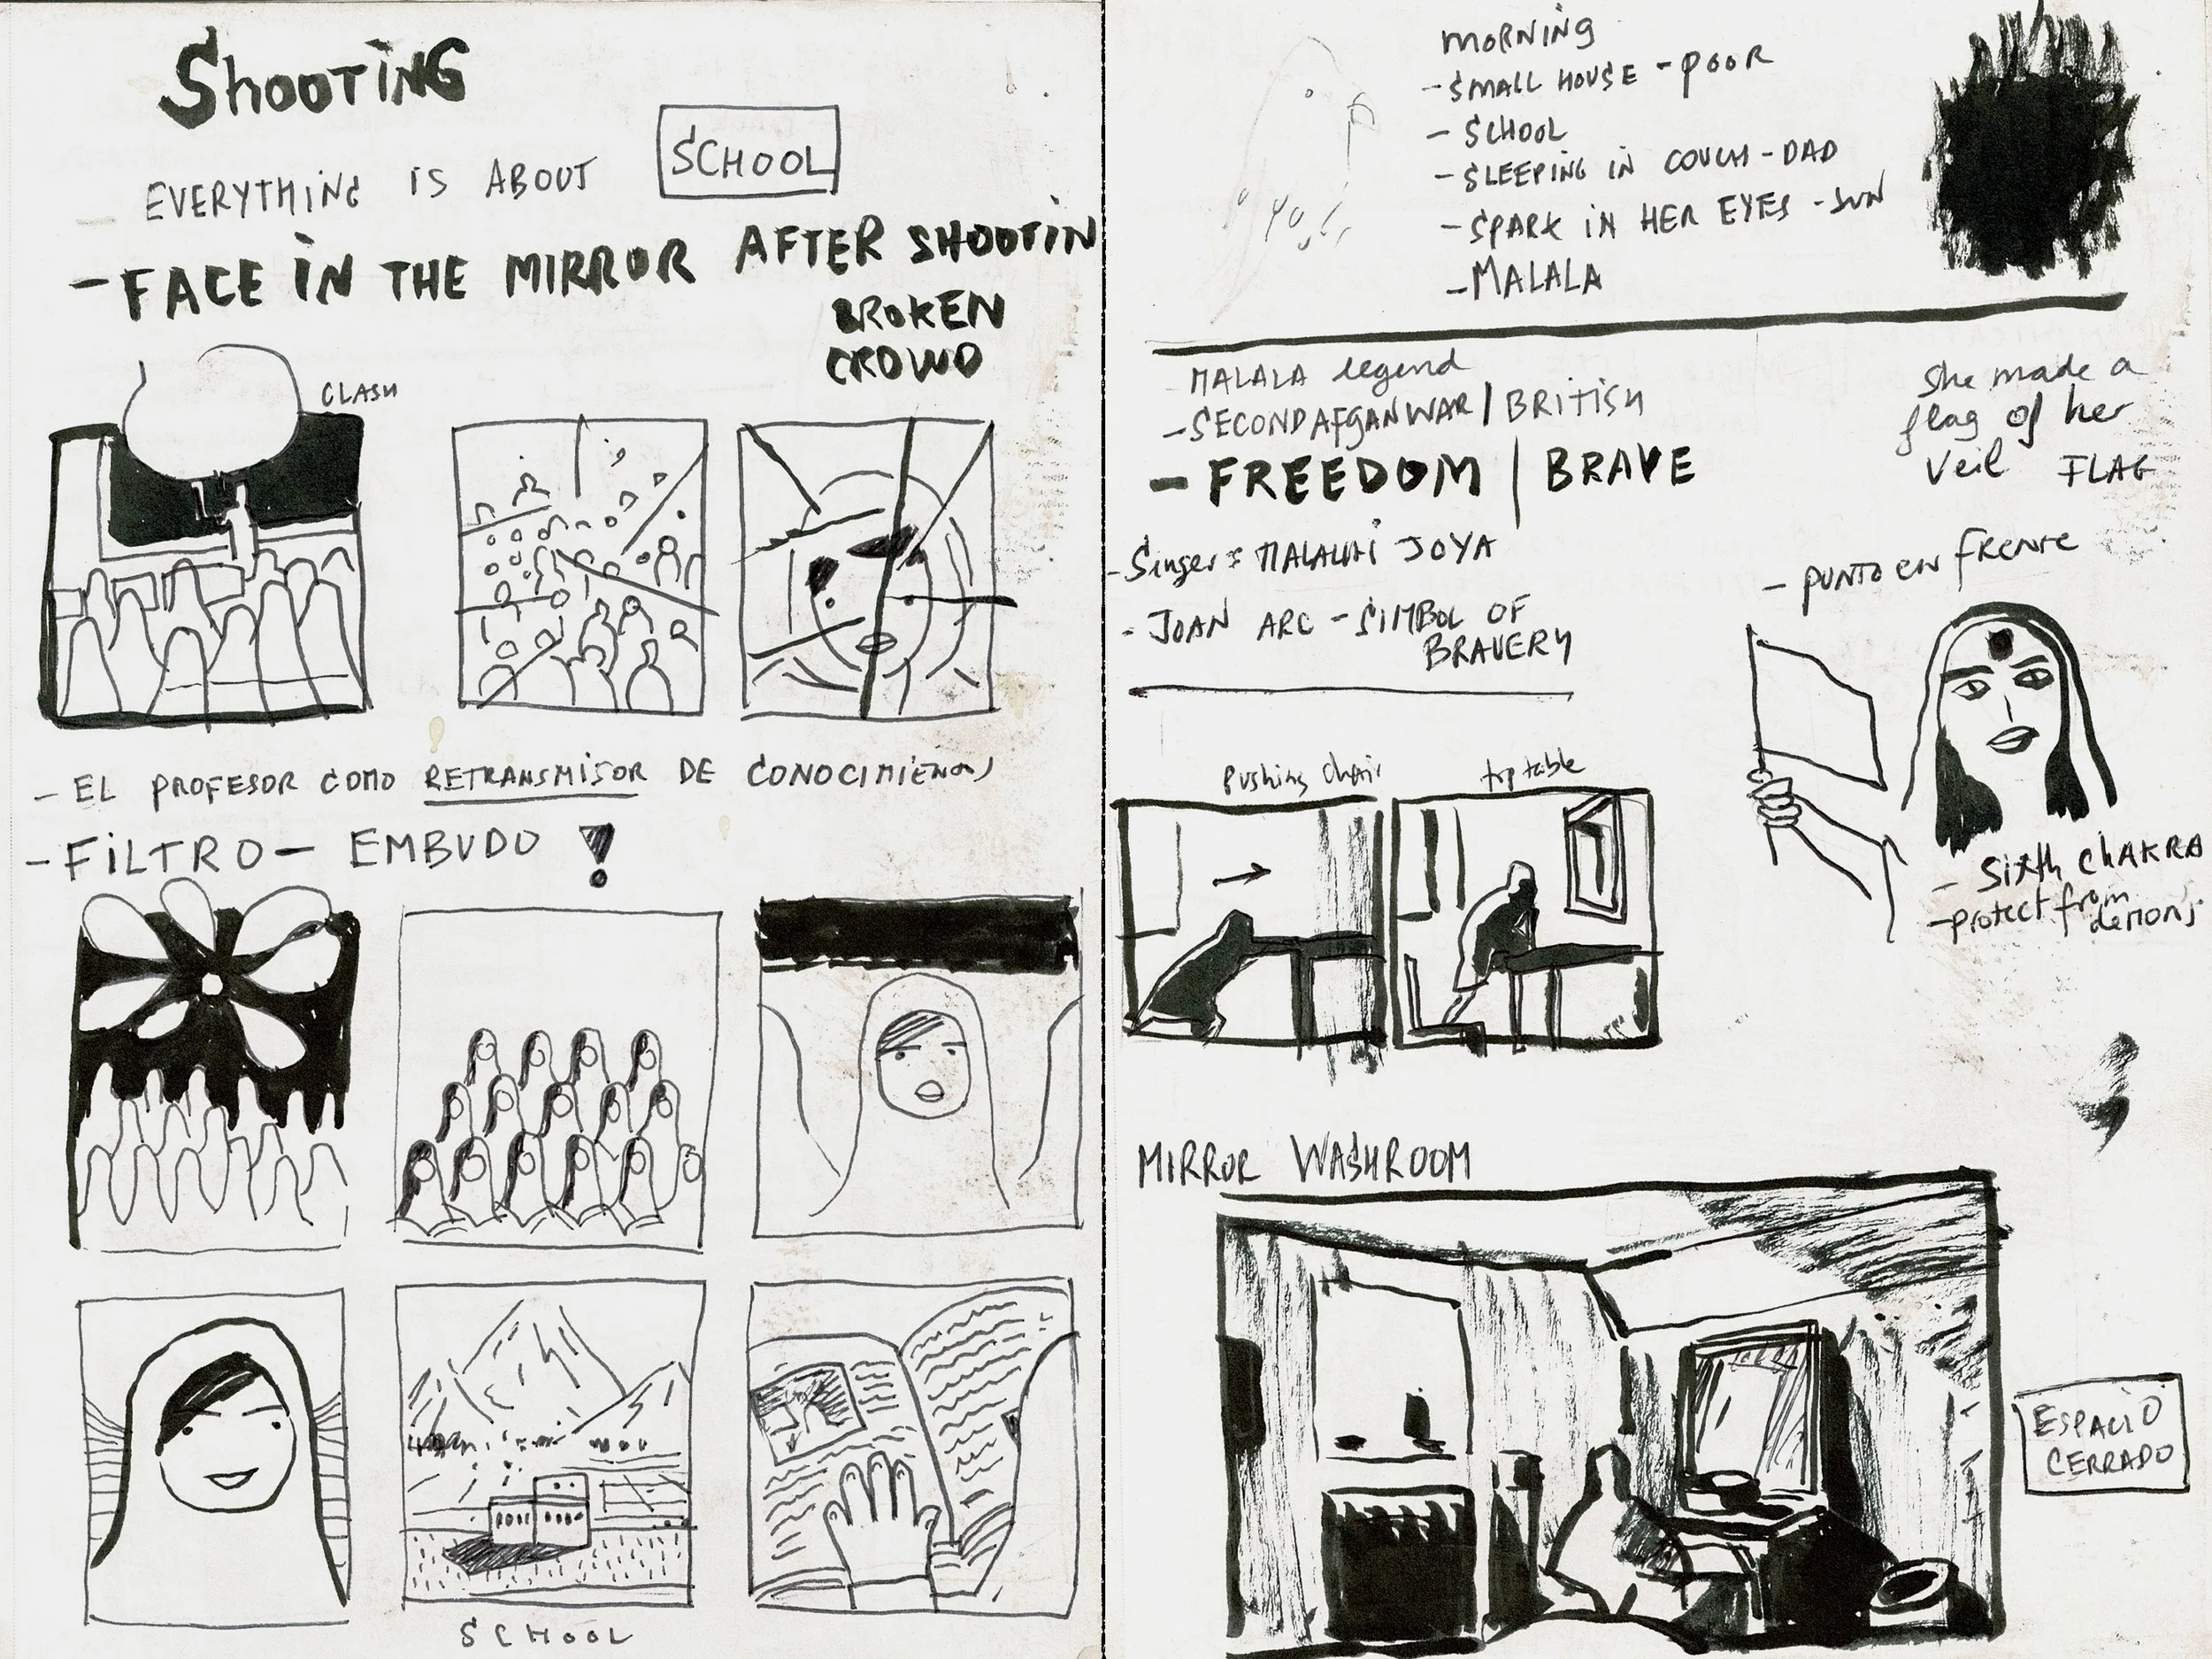 ShOOTiNG
EVERYTHING IS ABOUT SCHOOL
- FACE IN THE MIRROR AFTER SHOOTIN
BROKEN
CROWD
CLASH
- EL PROFESOR COMO RETRANSMISOR DE CONOCIMIENTOS
- FILTRO - EMBUDO !
SCHOOL
MORNING
- SMALL HOUSE - POOR
- SCHOOL
- SLEEPING IN COUCH - DAD
- SPARK IN HER EYES - SUN
- MALALA
MALALA legend
- SECOND AFGAN WAR / BRITISH
- FREEDOM | BRAVE
She made a
flag of her
veil FLAG
- Singer: MALALAI JOYA
- JOAN ARC - SIMBOL OF
BRAVERY
- PUNTO EN FRENTE
- Sixth CHAKRA
- protect from
demons
Pushing chair
top table
MIRROR WASHROOM
ESPACIO
CERRADO